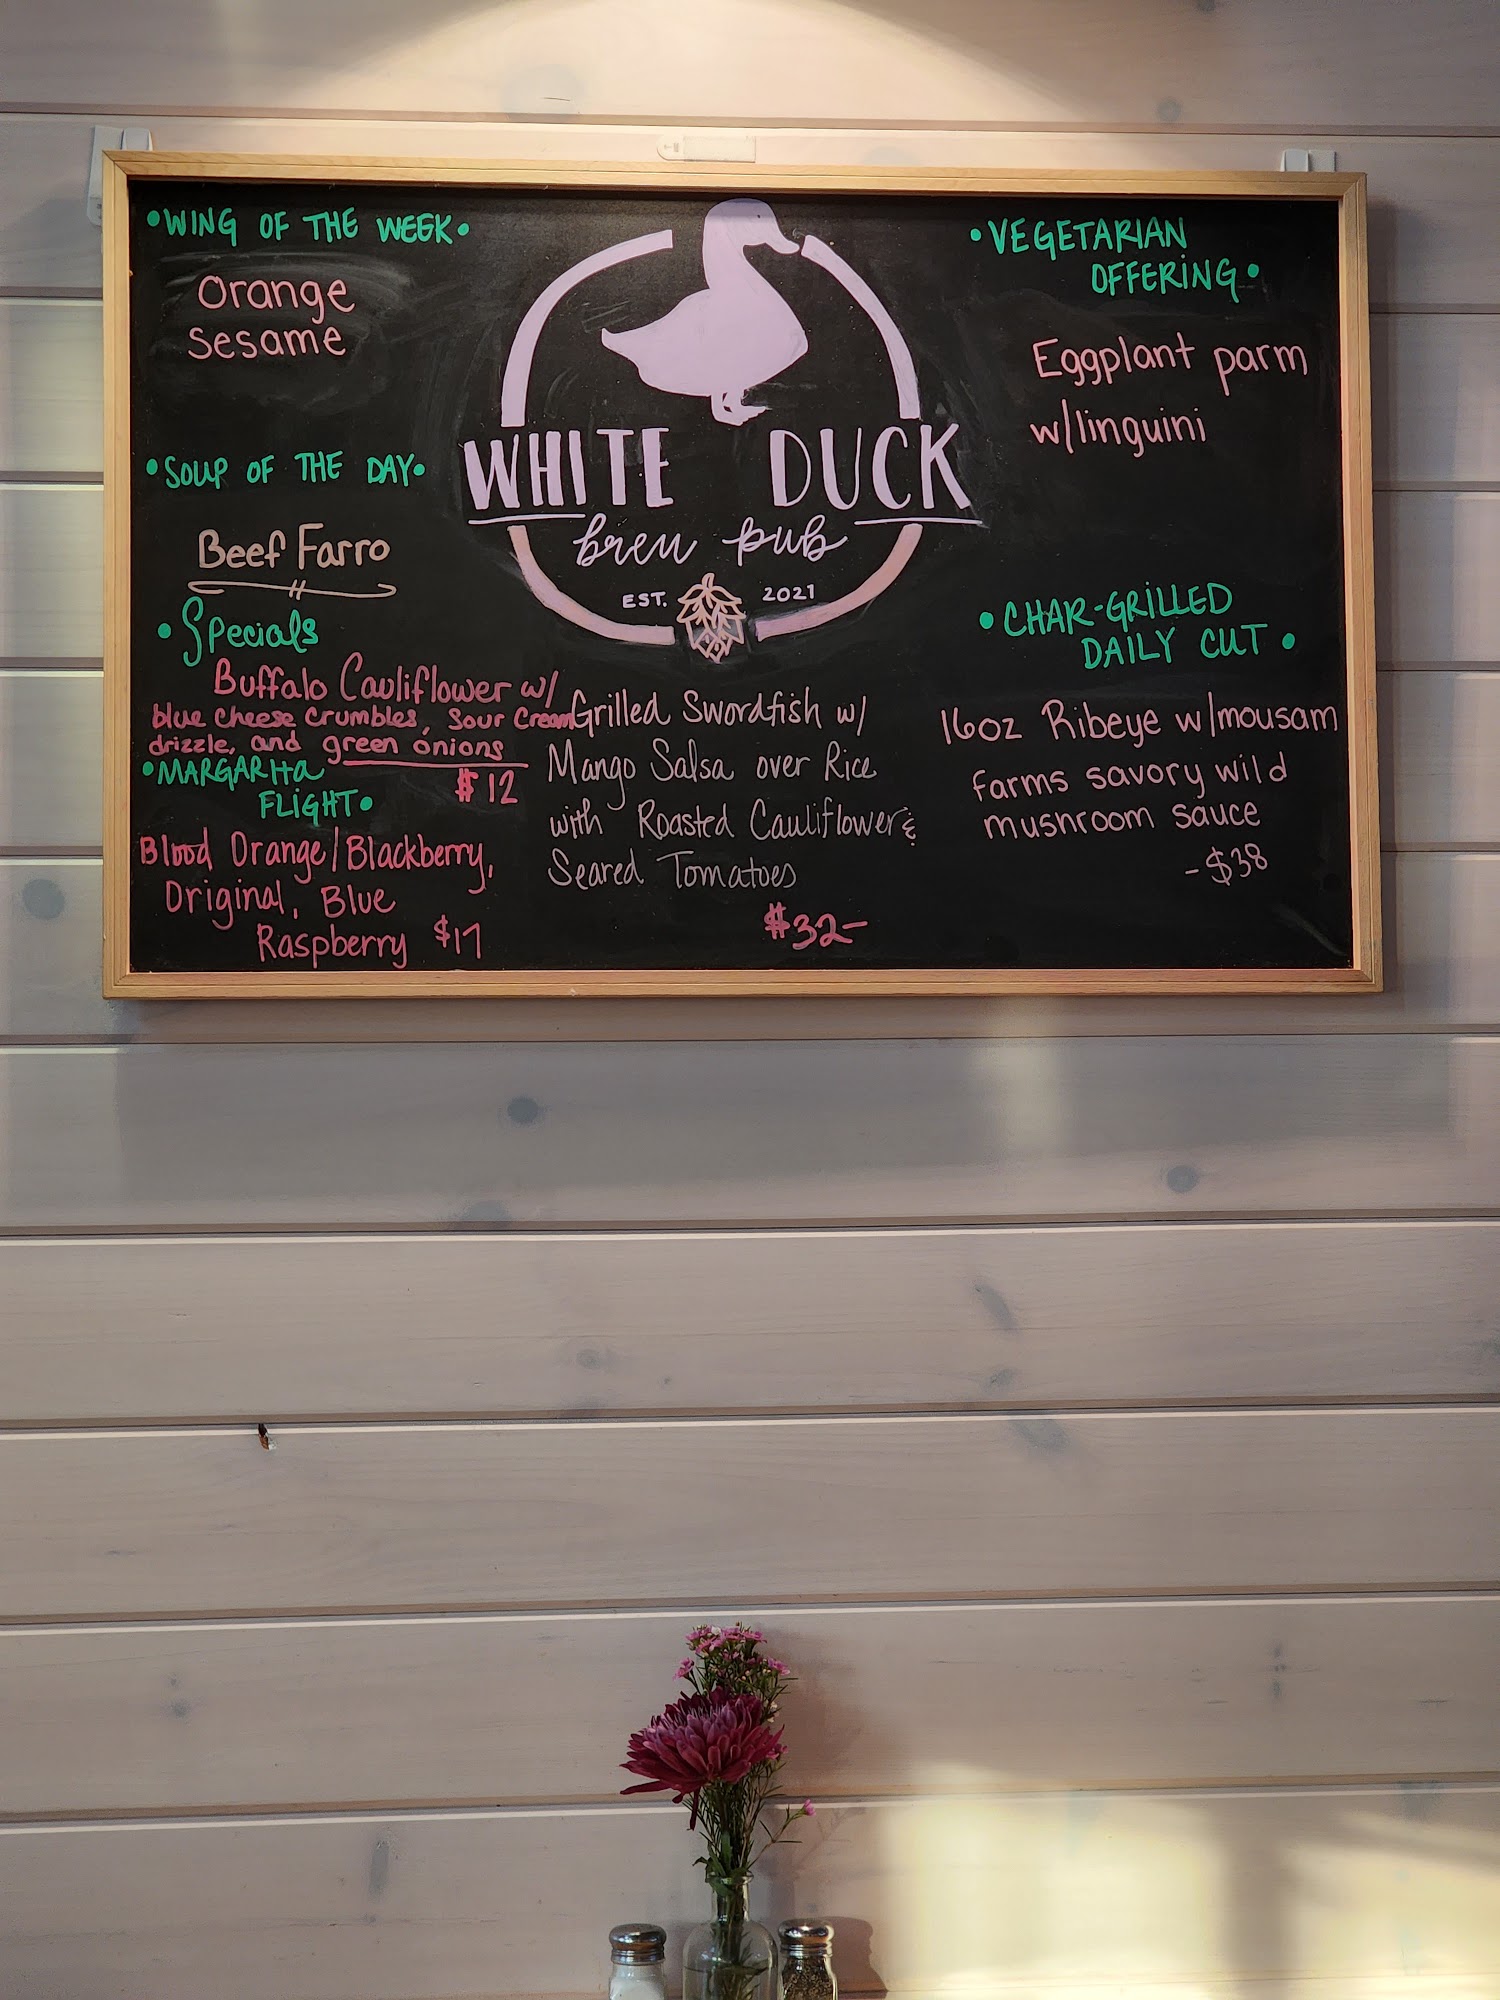 •WING OF THE WEEK•
Orange
sesame
•SOUP OF THE DAY•
Beef Farro
•Specials
Buffalo Cauliflower w/
blue cheese crumbles, sour cream
drizzle, and green onions
$12
•MARGARITA
FLIGHT•
Blood Orange/Blackberry,
Original, Blue
Raspberry $17
WHITE DUCK
brew pub
EST. 2021
Grilled Swordfish w/
Mango Salsa over Rice
with Roasted Cauliflower &
Seared Tomatoes
$32-
•VEGETARIAN
OFFERING•
Eggplant parm
w/linguini
•CHAR-GRILLED
DAILY CUT•
16oz Ribeye w/mousam
farms savory wild
mushroom sauce
-$38